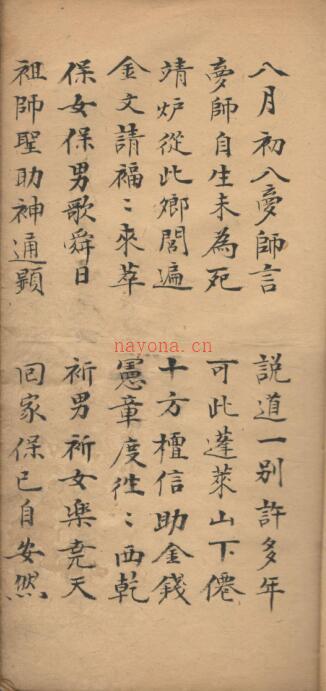 八月初八夢師言　說道一別許多年
夢師自生未為死　可此蓬萊山下僊
靖炉從此鄉閭遍　十方檀信助金錢
金文請福〻來萃　憲章度徃〻西乾
保女保男歌舜日　祈男祈女樂堯天
祖師聖助神通顯　回家保已自安然
nayona.cn